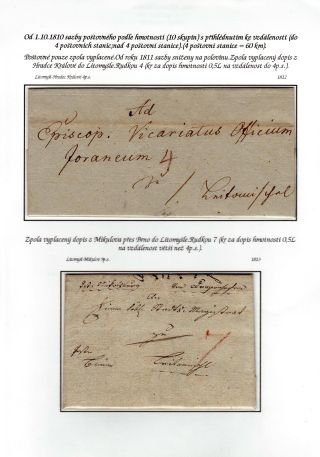 Od 1.10.1810 sazby poštovného podle hmotností (10 skupin) s přihlédnutím ke vzdálenosti (do
4 poštovních stanic,nad 4 poštovní stanice).(4 poštovní stanice = 60 km)
Poštovné pouze zpola vyplacené.Od roku 1811 sazby sníženy na polovinu.Zpola vyplacený dopis z
Hradce Králové do Litomyšle.Rudkou 4 (kr za dopis hmotnosti 0,5L na vzdálenost do 4p.s.).
Litomyšl-Hradec Králové 4p.s. 1812
Ad
Episcop. Vicariatus Officium
foraneum 4
Leitomischel
Zpola vyplacený dopis z Mikulova přes Brno do Litomyšle.Rudkou 7 (kr za dopis hmotnosti 0,5L
na vzdálenost větší než 4p.s.).
Litomyšl-Mikulov 9p.s. 1813
An
Magistrat
zu
7
Leitomischl